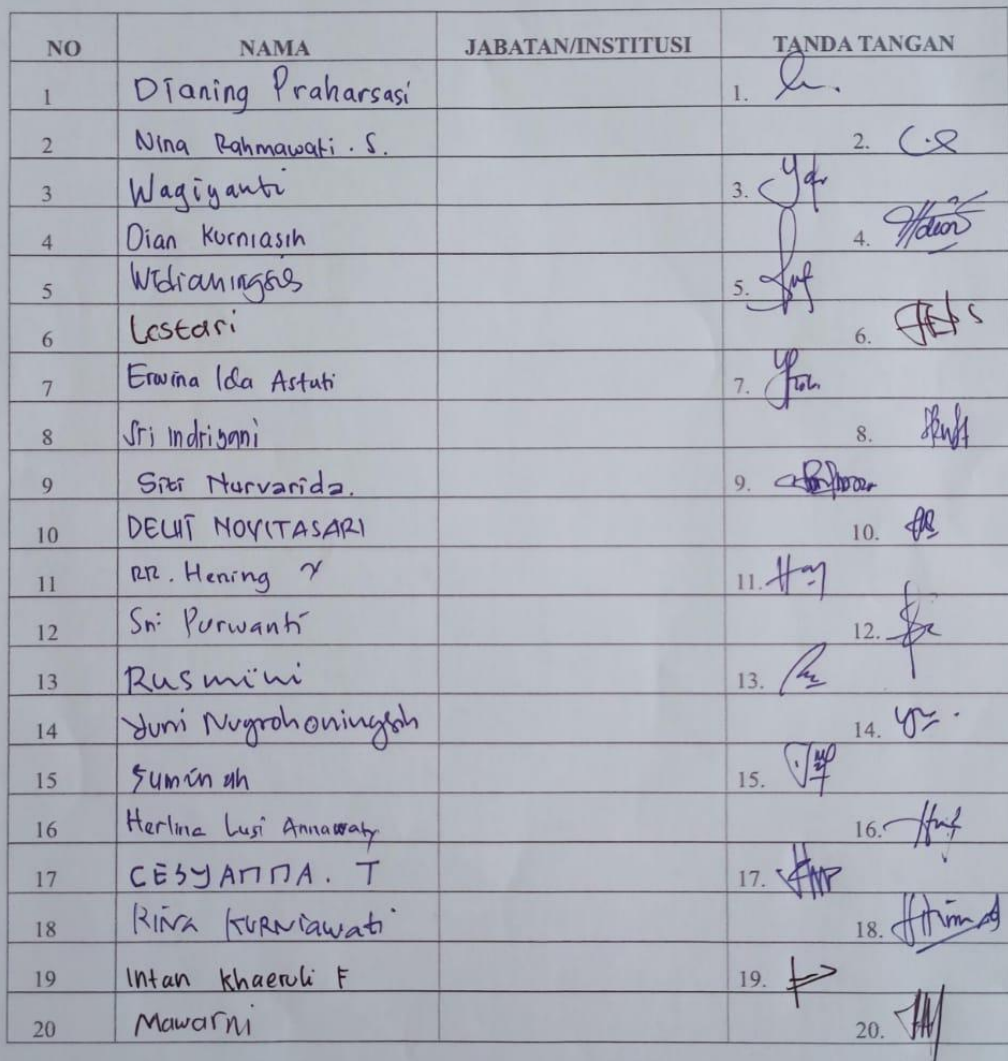 NO NAMA JABATAN/INSTITUSI TANDA TANGAN
1 Dianing Praharsasi 1.
2 Nina Rahmawati . S. 2.
3 Wagiyanti 3.
4 Dian Kurniasih 4.
5 5.
6 Lestari 6.
7 Erwina Ida Astuti 7.
8 Sri Indriyani 8.
9 Siti Nurvarida. 9.
10 DEWI NOVITASARI 10.
11 RR. Hening 11.
12 Sri Purwanti 12.
13 Rusmini 13.
14 Yuni Nugrohoningsih 14.
15 Suminah 15.
16 Herlina Lusi Annawaty 16.
17 CESYANNA. T 17.
18 RINA KURNIAWATI 18.
19 Intan Khaeruli F 19.
20 Mawarni 20.